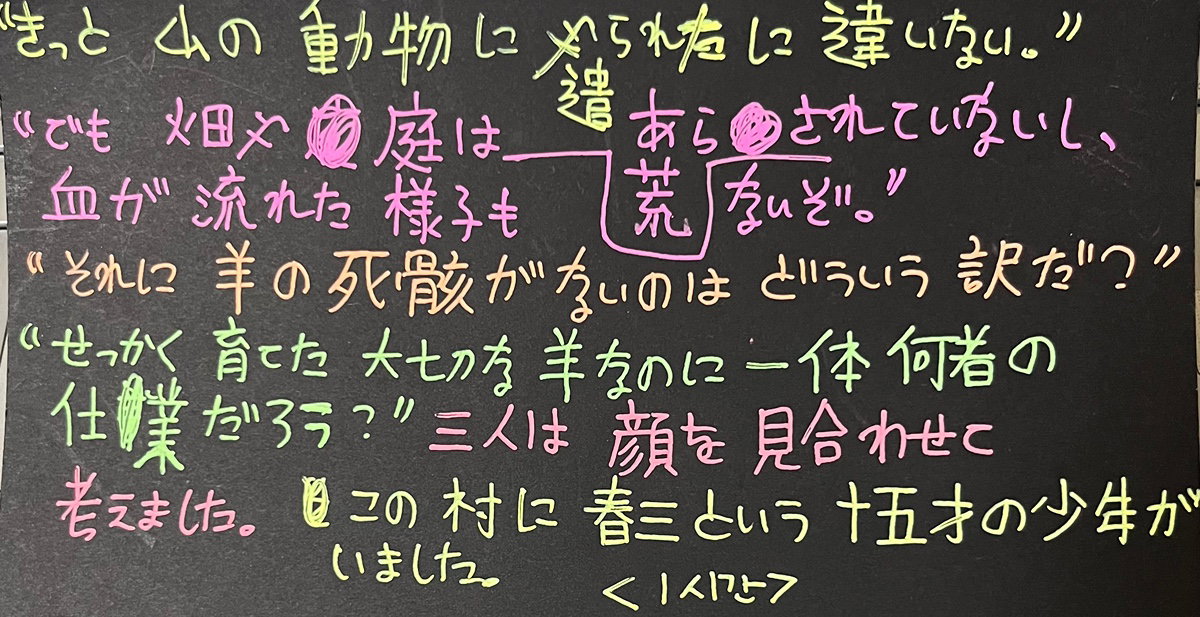 “きっと 山の 動物に やられたに 違いない。”
遣
“でも 畑や 庭は あらされていないし、
血が 流れた 様子も 荒 ないぞ。”
“それに 羊の 死骸がないのは どういう 訳だ?”
“せっかく 育てた 大切な 羊なのに 一体 何者の
仕業だろう?” 三人は 顔を 見合わせて
考えました。 この 村に 春三という 十五才の少年が
いました。